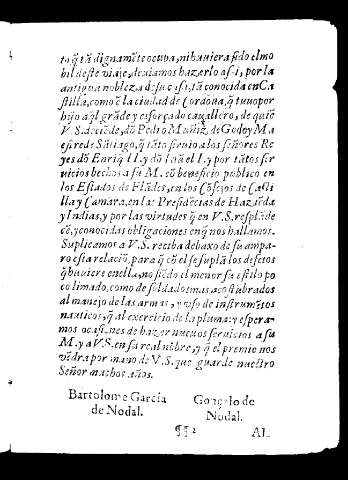 to q̃ tã dignamẽte ocupa, ni huuiera sido el mo
bil deste viaje, deuiamos hazerlo assi, por la
antigua nobleza de su casa, tã conocida en Ca
stilla, como ẽ la ciudad de Cordoua, q̃ tuuo por
hijo aq̃l grãde y esforçado cauallero, de quiẽ
V.S. deciẽde, dõ Pedro Muñiz de Godoy Ma
estre de Sãtiago, q̃ tãto siruio a los señores Re
yes dõ Enriq̃ II. y dõ Iuã el I. y por tãtos ser
uicios hechos a su M. eñ beneficio publico en
los Estados de Flãdes, en los Cõsejos de Casti
lla y Camara, en la Presidẽcias de Haziẽda
y Indias, y por las virtudes q̃ en V.S. resplãde
cẽ, y conocidas obligaciones en q̃ nos hallamos.
Suplicamos a V.S. reciba debaxo de su ampa-
ro esta relaciõ, para q̃ cõ el se suplã los defetos
q̃ huuiere en ella, no siẽdo el menor su estilo po
co limado, como de soldados mas acostũbrados
al manejo de las armas, y vso de instrumẽtos
nauticos, q̃ al exercicio de la pluma: y espera-
mos ocasiones de hazer nueuos seruicios a su
M. y a V.S. en su real nõbre, y q̃ el premio nos
vẽdra por mano de V.S. que guarde nuestro
Señor muchos años.
Bartolome Garcia
de Nodal.
Gonçalo de
Nodal.
¶¶ 2
AL